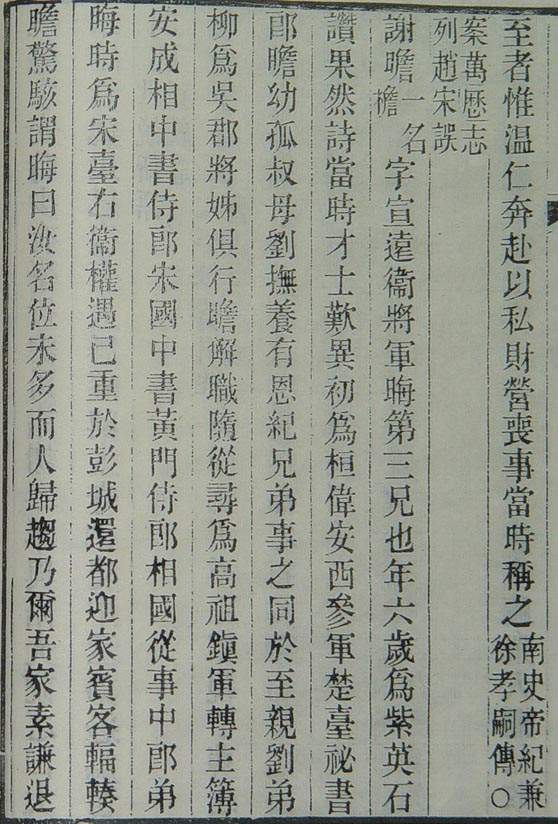 至者惟温仁奔赴以私財營喪事當時稱之南史帝紀兼
徐孝嗣傳○
案萬歷志
列趙宋誤
謝瞻一名
檐字宣遠衞將軍晦第三兄也年六歲爲紫英石
讚果然詩當時才士歎異初爲桓偉安西參軍楚臺祕書
郎瞻幼孤叔母劉撫養有恩紀兄弟事之同於至親劉弟
柳爲吳郡將姊俱行瞻解職隨從尋爲高祖鎭軍轉主簿
安成相中書侍郎宋國中書黃門侍郎相國從事中郎弟
晦時爲宋臺右衞權遇已重於彭城還都迎家賓客輻輳
瞻驚駭謂晦曰汝名位未多而人歸趨乃爾吾家素謙退